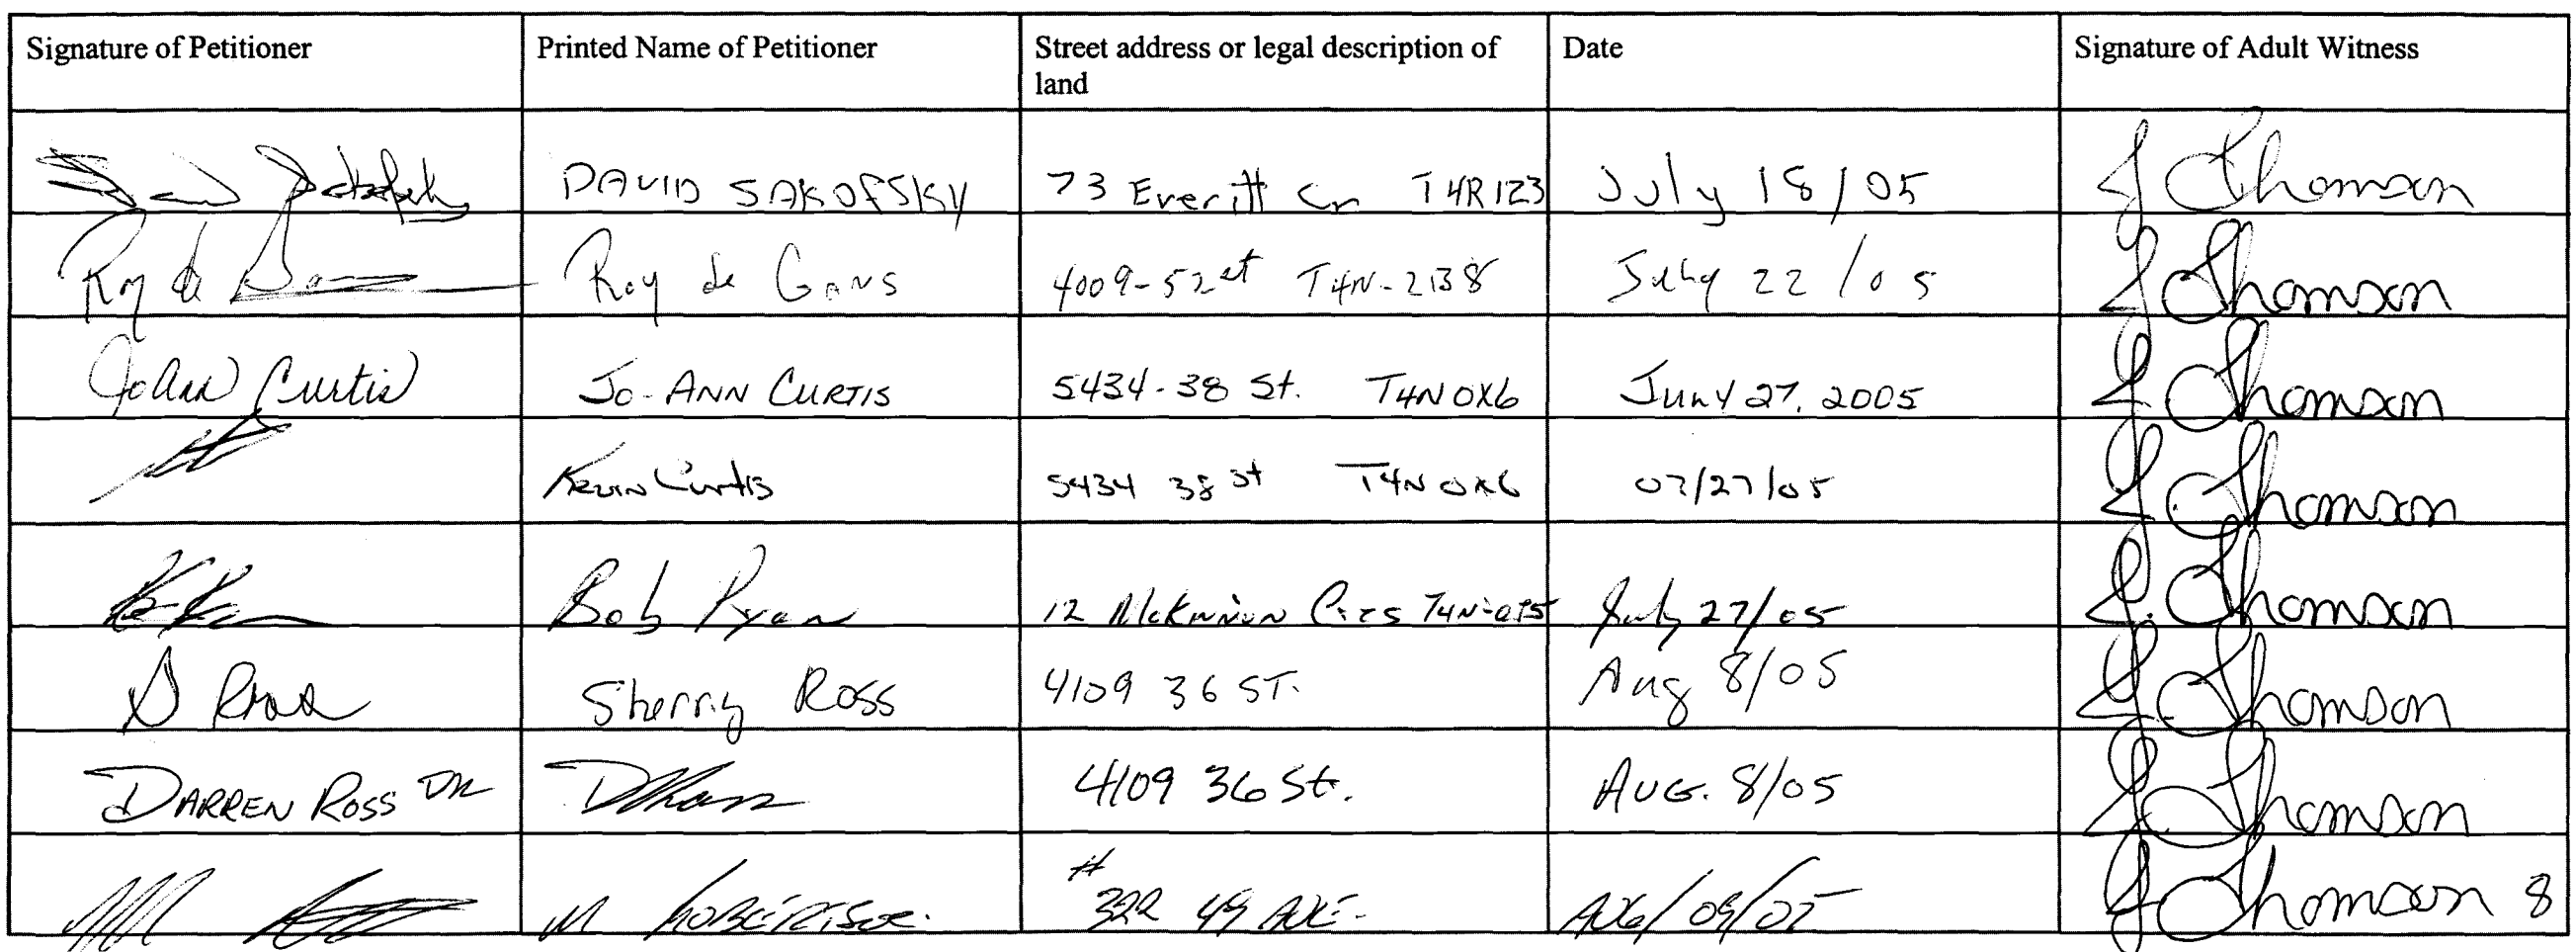 Signature of Petitioner Printed Name of Petitioner Street address or legal description of land Date Signature of Adult Witness
DAVID SAKOFSKY 73 Everitt Cr T4R1Z3 July 18/05 J Thomson
Roy de Gans 4009-52st T4N-2B8 July 22/05 J Thomson
JoAnn Curtis Jo-Ann Curtis 5434-38 St. T4N0X6 July 27, 2005 J Thomson
Kevin Curtis 5434 38 st T4N 0X6 07/27/05 J Thomson
Bob Ryan 12 McKinnon Cres T4N-0T5 July 27/05 J. Thomson
S Ross Sherry Ross 4109 36 ST. Aug 8/05 J Thomson
DARREN ROSS DR 4109 36 St. AUG. 8/05 J Thomson
M ROBERTSON # 322 49 AVE. AUG/09/05 J Thomson 8